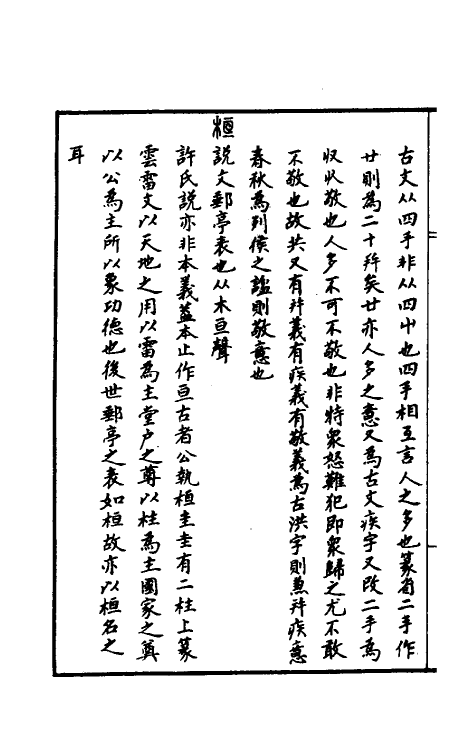 古文从四手非从四屮也四手相互言人之多也篆省二手作
廿則為二十幷矣廿亦人多之意又為古文疾字又改二手為
収収敬也人多不可不敬也非特衆怒難犯即衆歸之尤不敢
不敬也故共又有幷義有疾義有敬義為古洪字則兼幷疾意
春秋為列侯之謚則敬意也
桓
說文郵亭表也从木亘聲
許氏說亦非本義蓋本止作亘古者公執桓圭圭有二柱上篆
雲雷文以天地之用以雷為主堂户之尊以柱為主國家之奠
以公為主所以象功德也後世郵亭之表如桓故亦以桓名之
耳